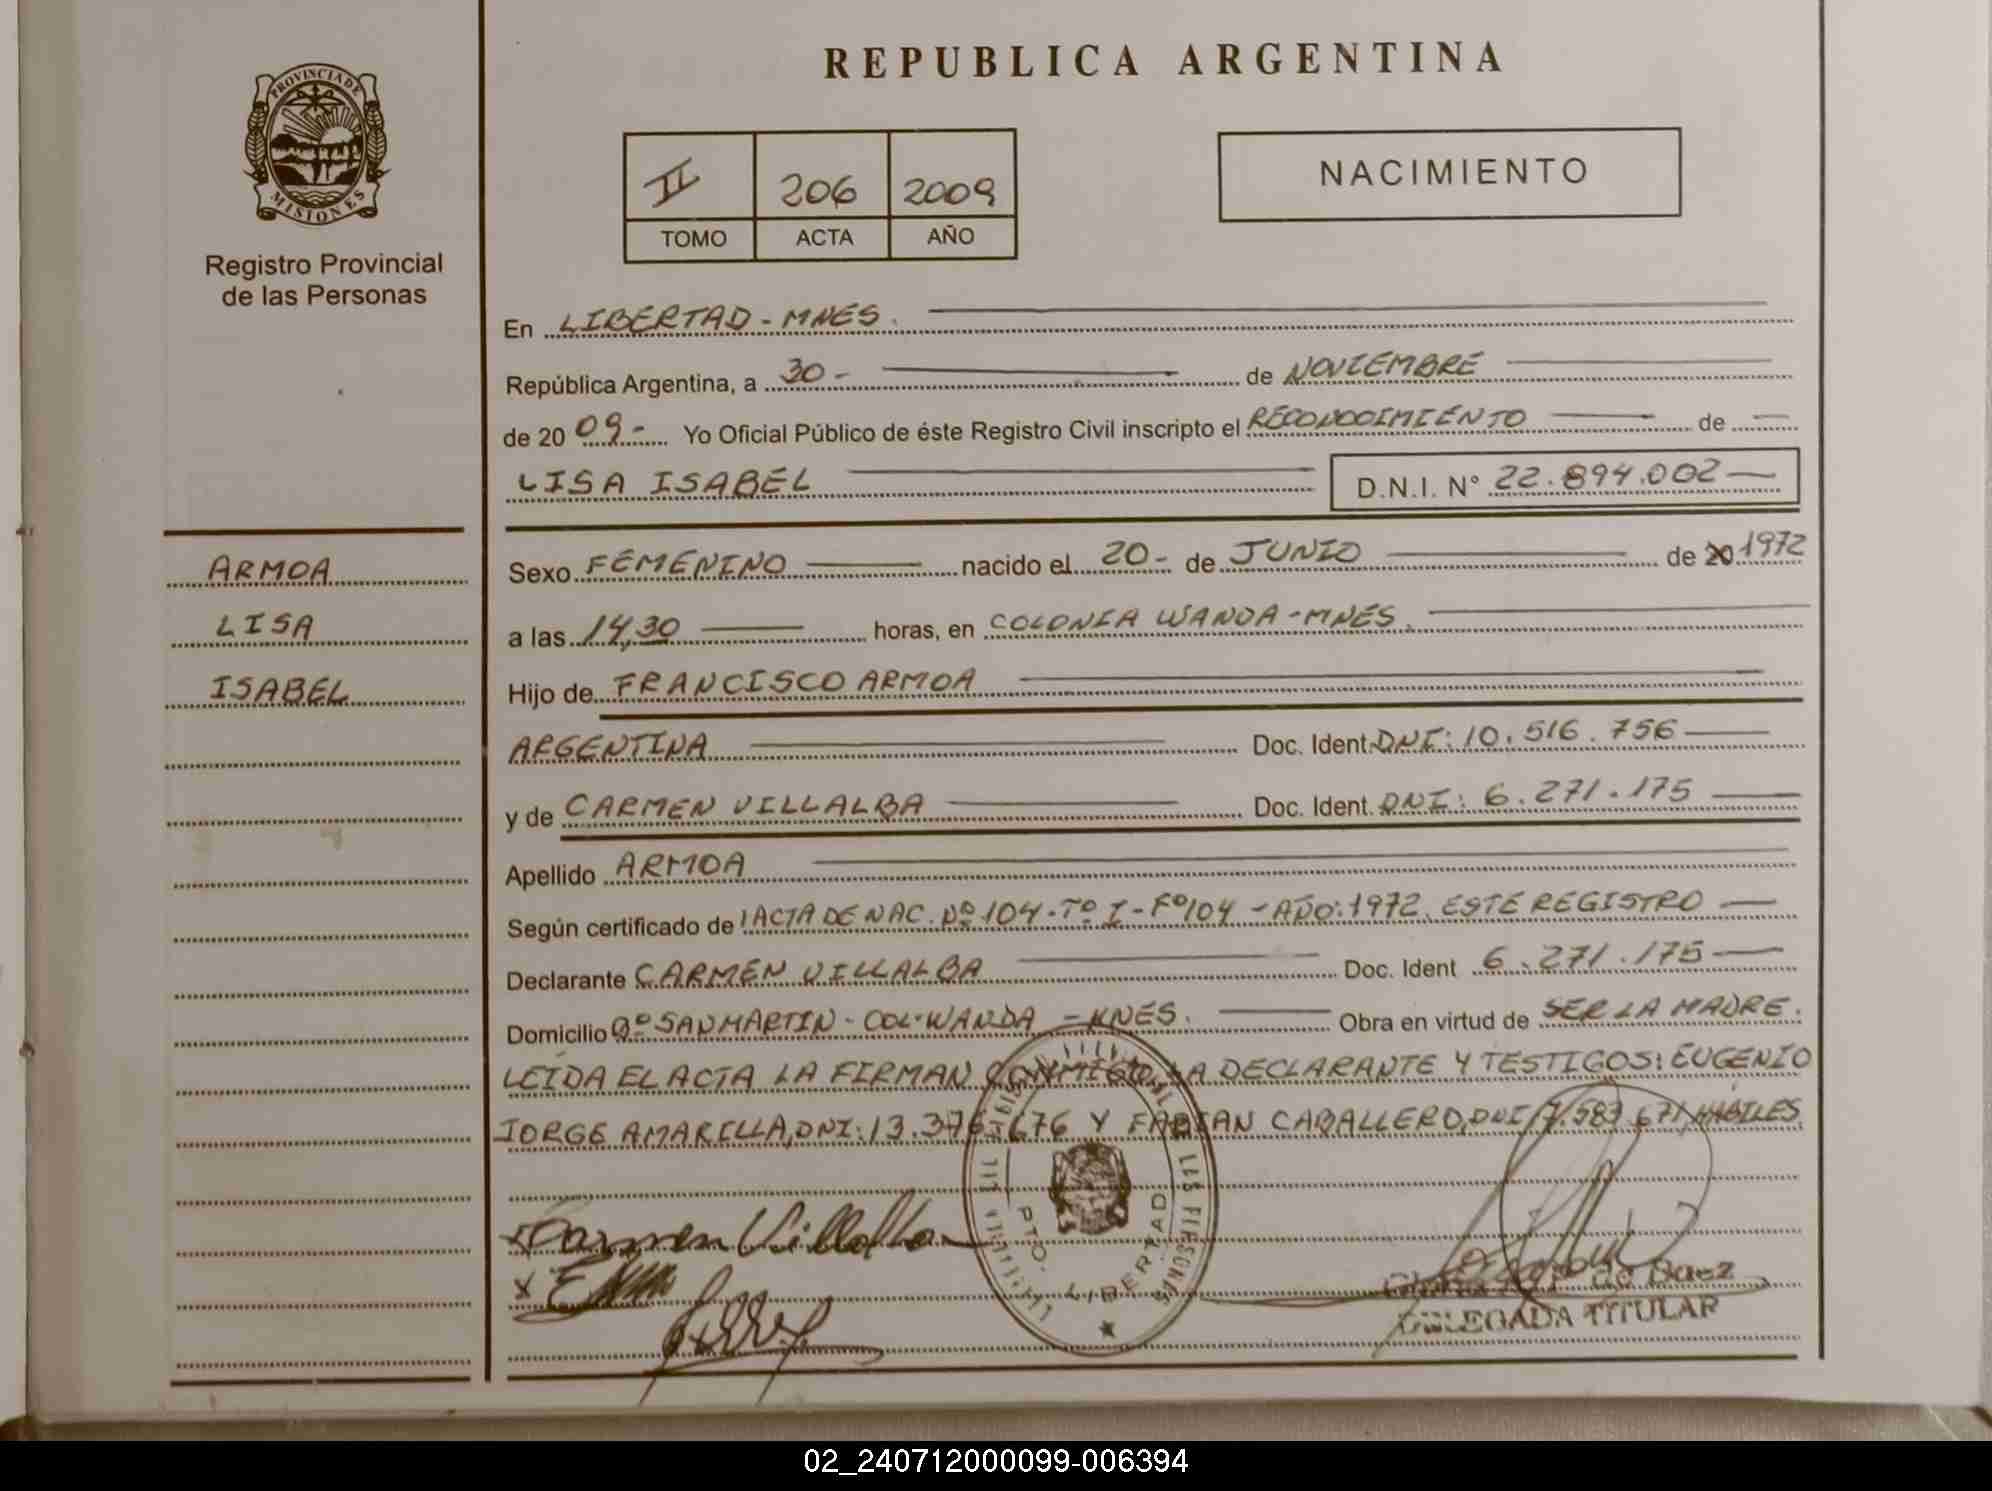 REPUBLICA ARGENTINA
PROVINCIA DE
MISIONES
Registro Provincial
de las Personas
II 206 2009
TOMO ACTA AÑO
NACIMIENTO
En LIBERTAD - MNES.
República Argentina, a 30 - de NOVIEMBRE
de 20 09 - Yo Oficial Público de éste Registro Civil inscripto el RECONOCIMIENTO de
LISA ISABEL D.N.I. N° 22.894.002
ARMOA
LISA
ISABEL
Sexo FEMENINO nacido el 20 - de JUNIO de 20 1972
a las 14,30 horas, en COLONIA WANDA - MNES.
Hijo de FRANCISCO ARMOA
ARGENTINA Doc. Ident. DNI: 10.516.756
y de CARMEN VILLALBA Doc. Ident. DNI: 6.271.175
Apellido ARMOA
Según certificado de ACTA DE NAC. Nº 104 - Tº I - Fº 104 - AÑO: 1972. ESTE REGISTRO
Declarante CARMEN VILLALBA Doc. Ident 6.271.175
Domicilio Bº SAN MARTIN - COL. WANDA - MNES. Obra en virtud de SER LA MADRE.
LEIDA EL ACTA LA FIRMAN CONMIGO, LA DECLARANTE Y TESTIGOS: EUGENIO
JORGE AMARILLA, DNI: 13.376.676 Y FABIAN CABALLERO, DNI 7.583.671, HABILES.
Carmen Villalba
PTO. LIBERTAD
de Baez
DELEGADA TITULAR
02_240712000099-006394